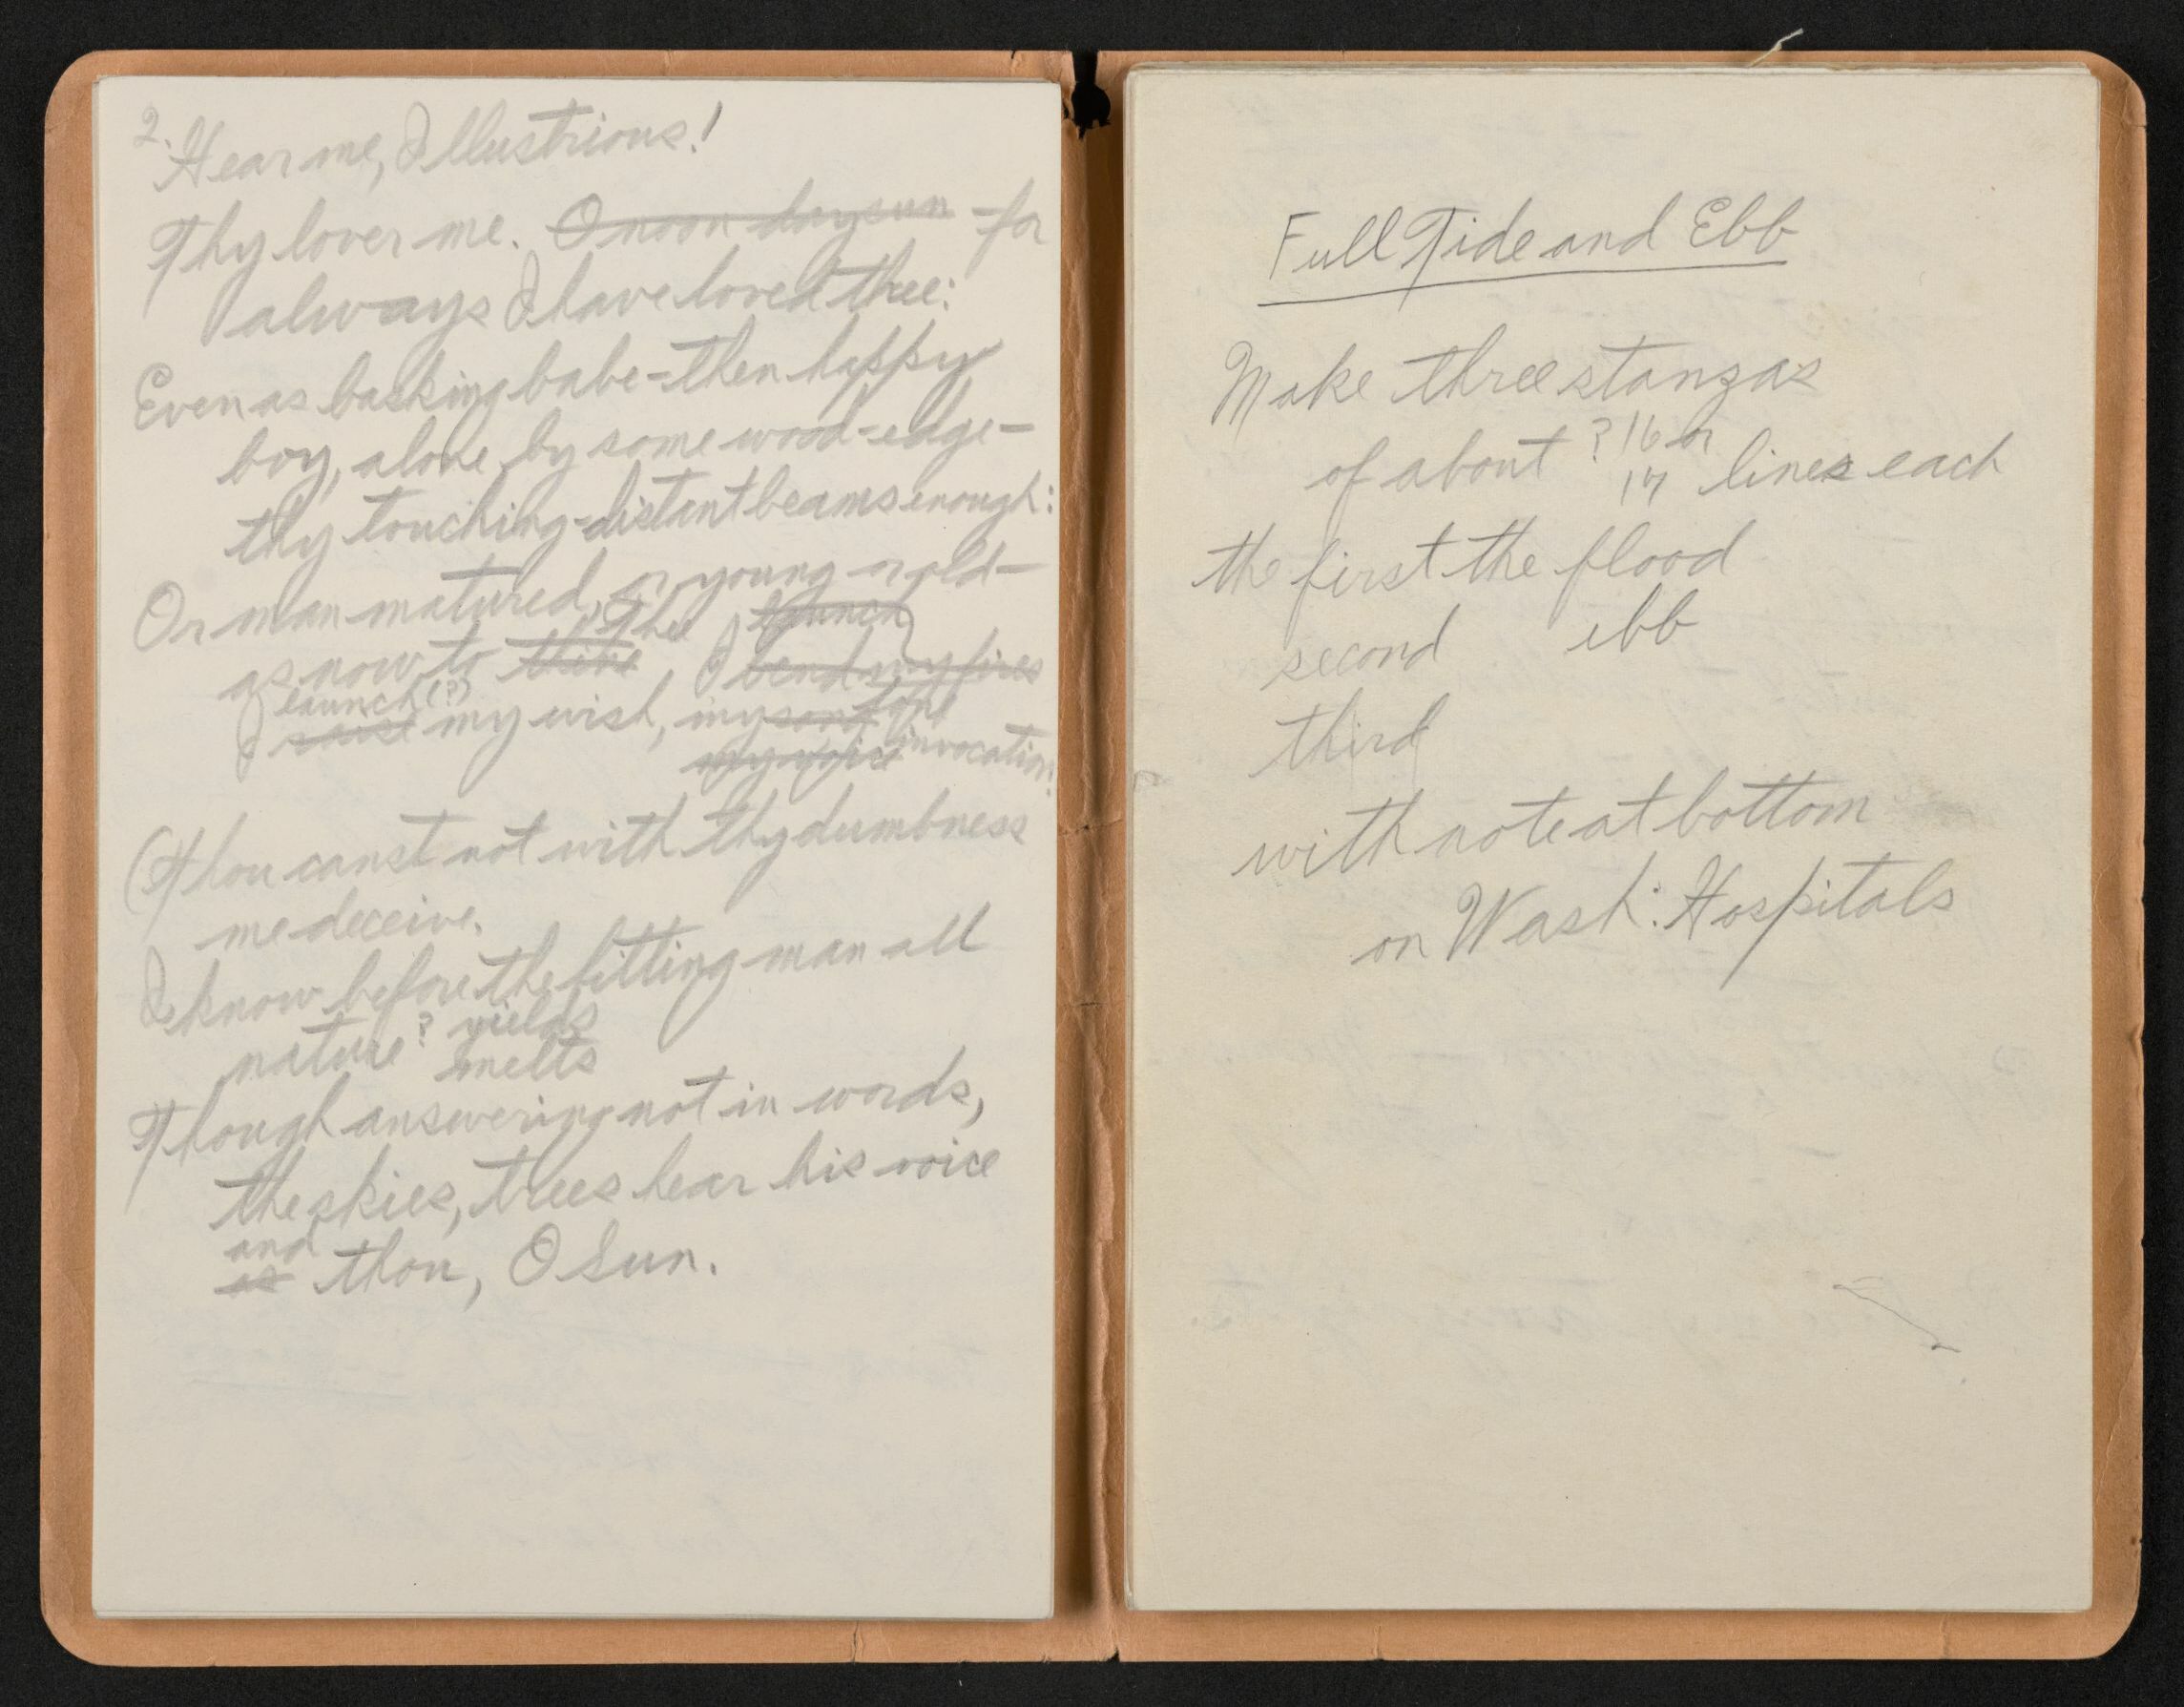 2.
Hear me, Illustrious!
Thy lover me. O noon day sun - for
always I have loved thee:
Even as basking babe - then happy
boy, alone by some wood-edge -
thy touching-distant beams enough:
Or man matured, or young or old -
Thee launch
as now to thine, I bend my fires
launch (?)
I raise my wish, my song fond
my voice invocation!
(Thou canst not with thy dumbness
me deceive.
I know before the fitting man all
nature ? yields
melts
Though answering not in words,
the skies, trees hear his voice
and
as thou, O Sun.
Full Tide and Ebb
Make three stanzas
of about ? 16 or
17 lines each
the first the flood
second ebb
third
with note at bottom
on Wash: Hospitals